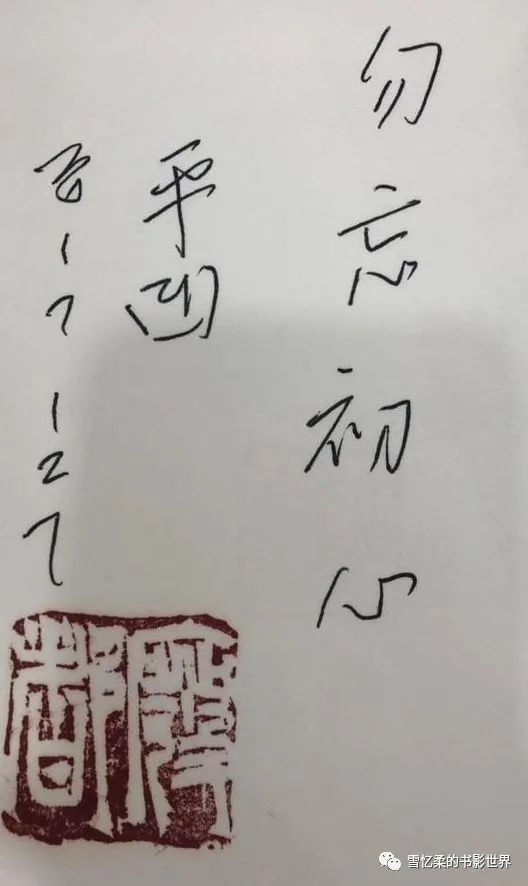 勿忘初心
平凹
17 12 7
廢都
雪忆柔的书影世界